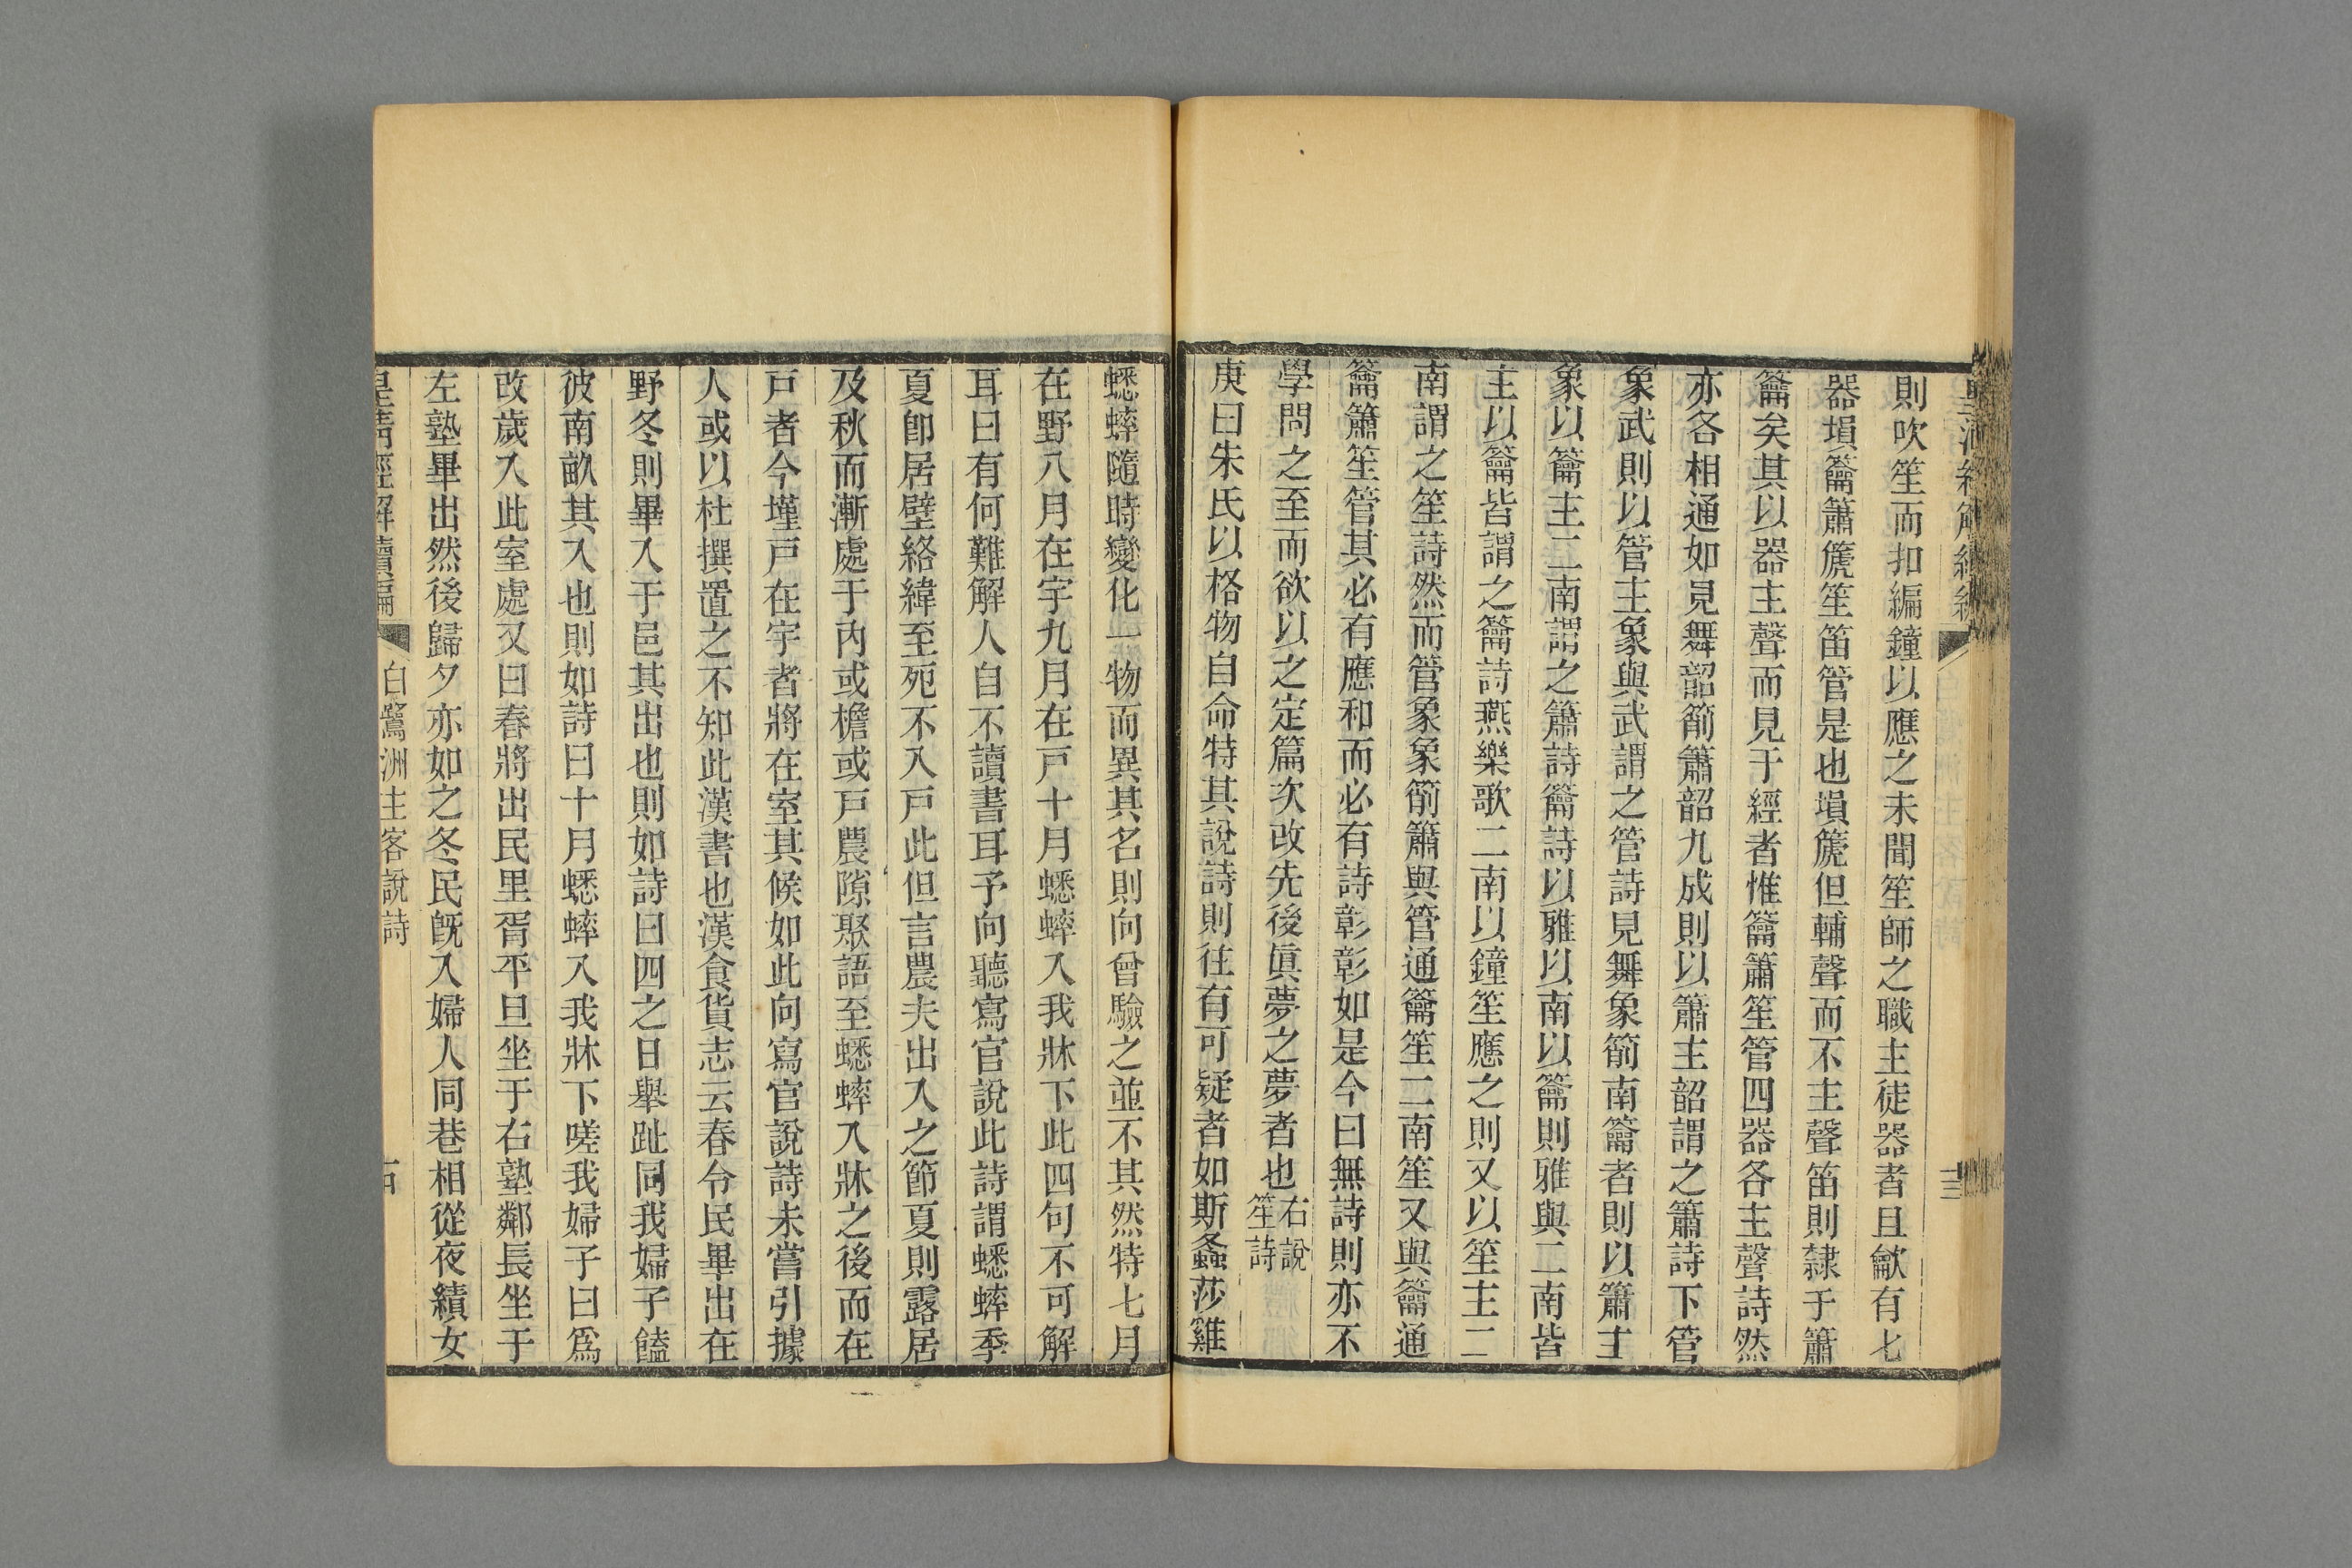 則吹笙而扣編鐘以應之未聞笙師之職主徒器者且龡有七
器塤籥簫篪笙笛管是也塤篪但輔聲而不主聲笛則隸于簫
籥矣其以器主聲而見于經者惟籥簫笙管四器各主聲詩然
亦各相通如見舞韶箾簫韶九成則以簫主韶謂之簫詩下管
象武則以管主象與武謂之管詩見舞象箾南籥者則以簫主
象以籥主二南謂之簫詩籥詩以雅以南以籥則雅與二南皆
主以籥皆謂之籥詩燕樂歌二南以鐘笙應之則又以笙主二
南謂之笙詩然而管象象箾簫與管通籥笙二南笙又與籥通
籥簫笙管其必有應和而必有詩彰彰如是今曰無詩則亦不
學問之至而欲以之定篇次改先後眞夢之夢者也右說笙詩
庚曰朱氏以格物自命特其說詩則往有可疑者如斯螽莎雞
蟋蟀隨時變化一物而異其名則向曾驗之並不其然特七月
在野八月在宇九月在戸十月蟋蟀入我牀下此四句不可解
耳曰有何難解人自不讀書耳予向聽寫官說此詩謂蟋蟀季
夏卽居壁絡緯至死不入戸此但言農夫出入之節夏則露居
及秋而漸處于內或檐或戸農隙聚語至蟋蟀入牀之後而在
戸者今墐戸在宇者將在室其候如此向寫官說詩未嘗引據
人或以杜撰置之不知此漢書也漢食貨志云春令民畢出在
野冬則畢入于邑其出也則如詩曰四之日舉趾同我婦子饁
彼南畝其入也則如詩曰十月蟋蟀入我牀下嗟我婦子曰爲
改歲入此室處又曰春將出民里胥平旦坐于右塾鄰長坐于
左塾畢出然後歸夕亦如之冬民旣入婦人同巷相從夜績女
皇清經解續編
白鷺洲主客說詩